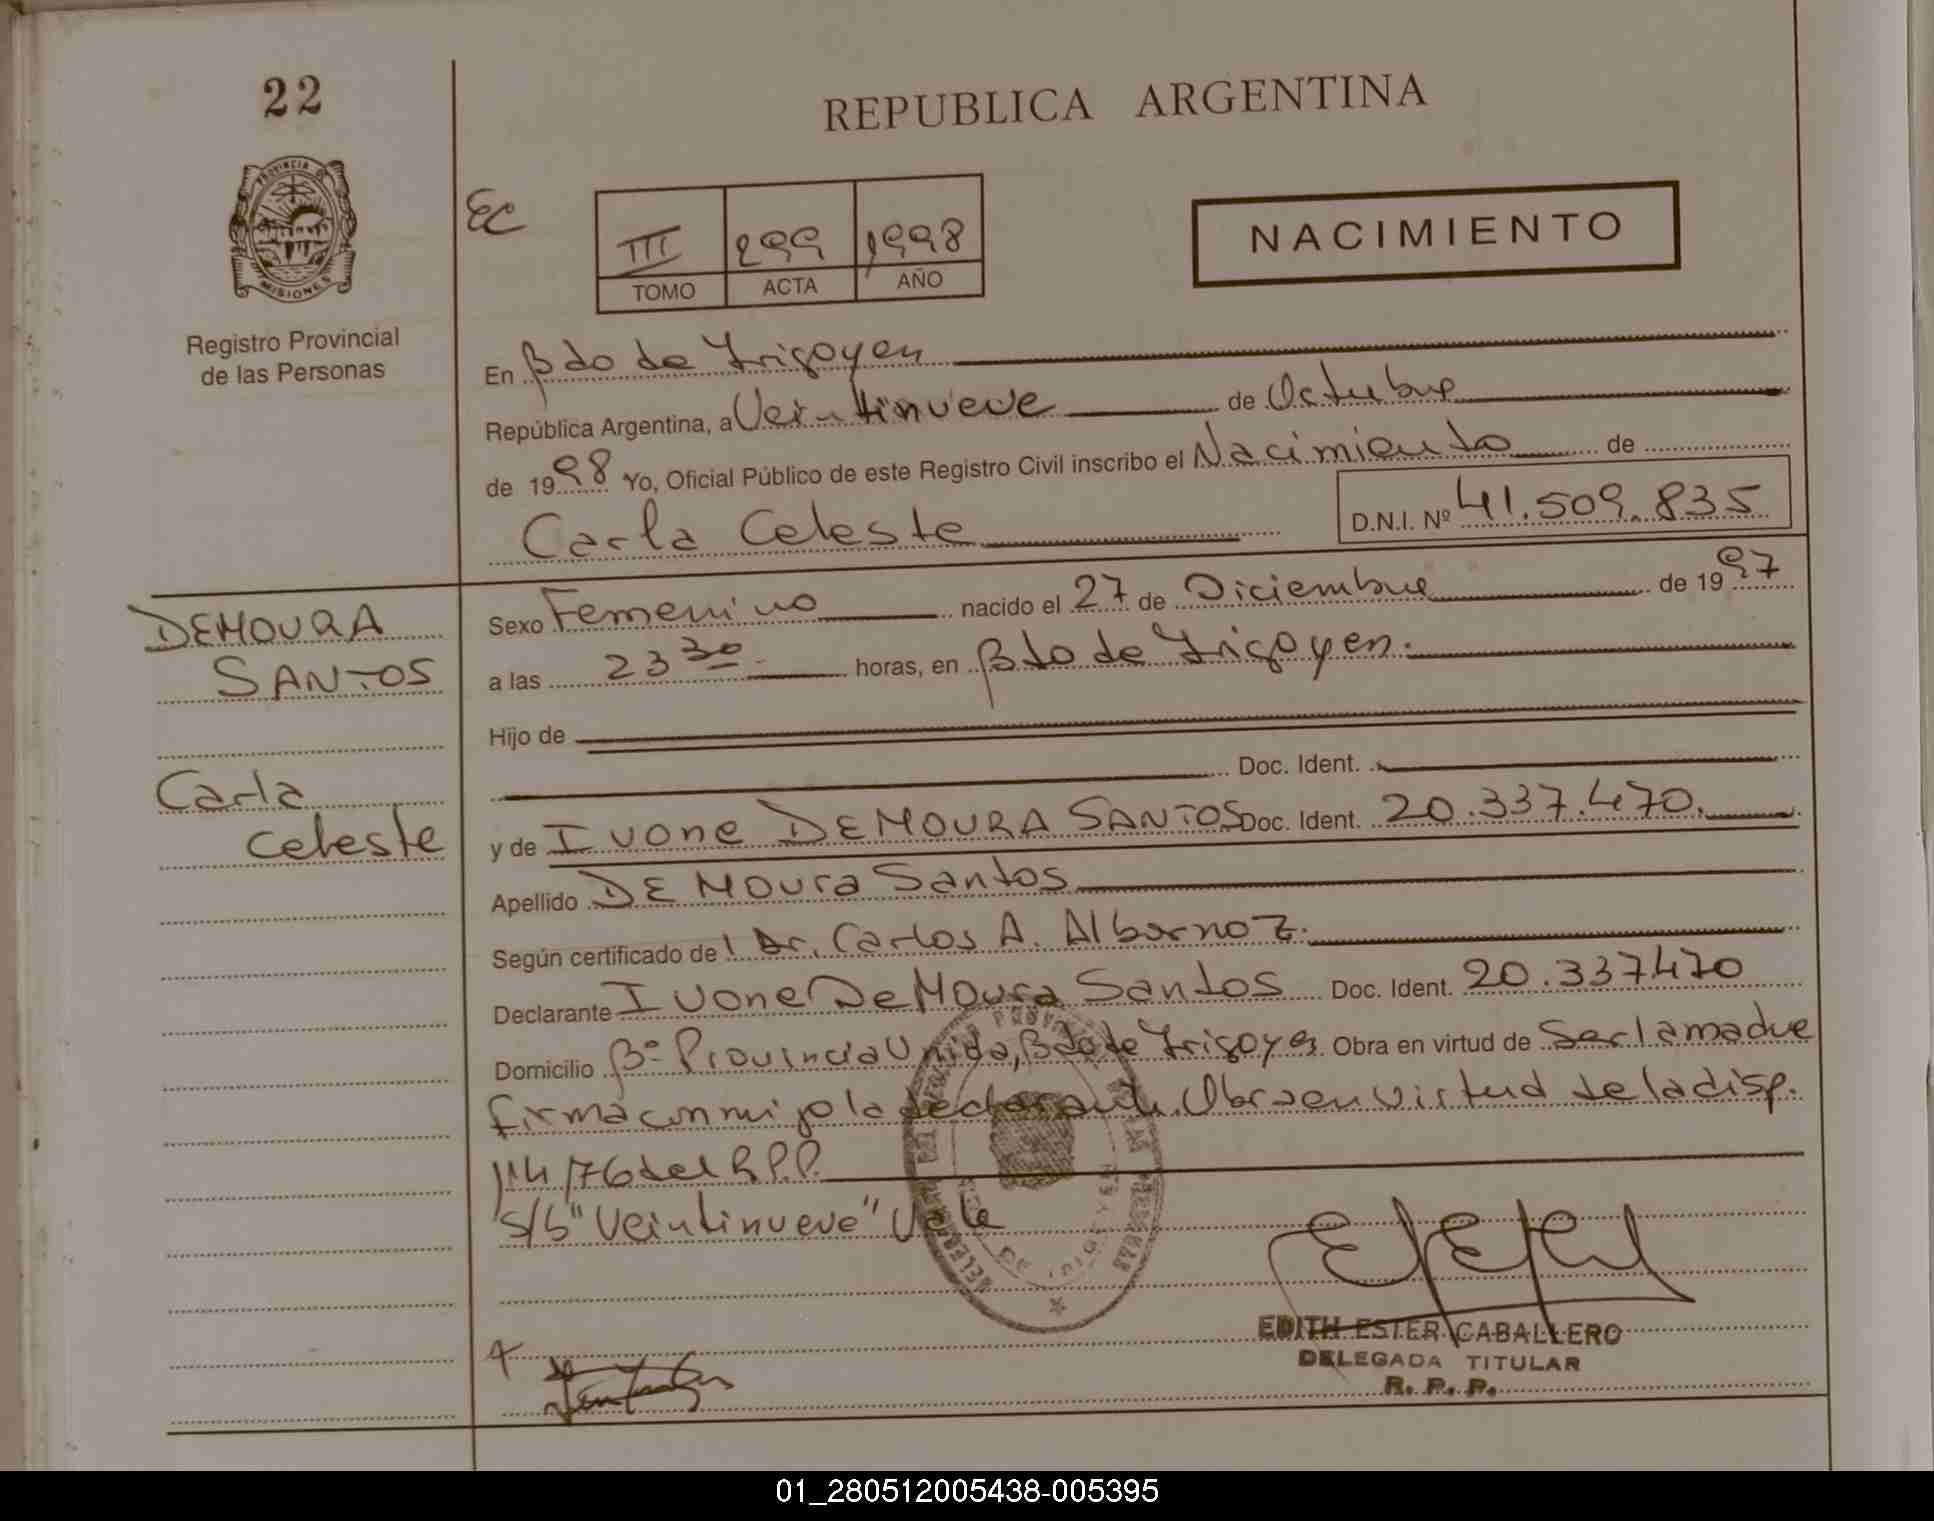 22
REPUBLICA ARGENTINA
PROVINCIA D
MISIONES
Registro Provincial
de las Personas
EC
III 299 1998
TOMO ACTA AÑO
NACIMIENTO
En Bdo de Irigoyen
República Argentina, a Veintinueve de Octubre
de 1998 Yo, Oficial Público de este Registro Civil inscribo el Nacimiento de
Carla Celeste D.N.I. Nº 41.509.835
DEMOURA
SANTOS
Carla
Celeste
Sexo Femenino nacido el 27 de Diciembre de 1997
a las 23 30 horas, en Bdo de Irigoyen.
Hijo de
Doc. Ident.
y de Ivone DEMOURA SANTOS Doc. Ident. 20.337.470.
Apellido DE Moura Santos
Según certificado del Dr. Carlos A. Albornoz.
Declarante Ivone DeMoura Santos Doc. Ident. 20.337470
Domicilio Bº Provincia Unida, Bdo de Irigoyen Obra en virtud de Ser la madre
firma conmigo la declarante. Obra en virtud de la disp.
114/76 del R.P.P.
s/b "Veintinueve" Vale
EDITH ESTER CABALLERO
DELEGADA TITULAR
R. P. P.
01_280512005438-005395